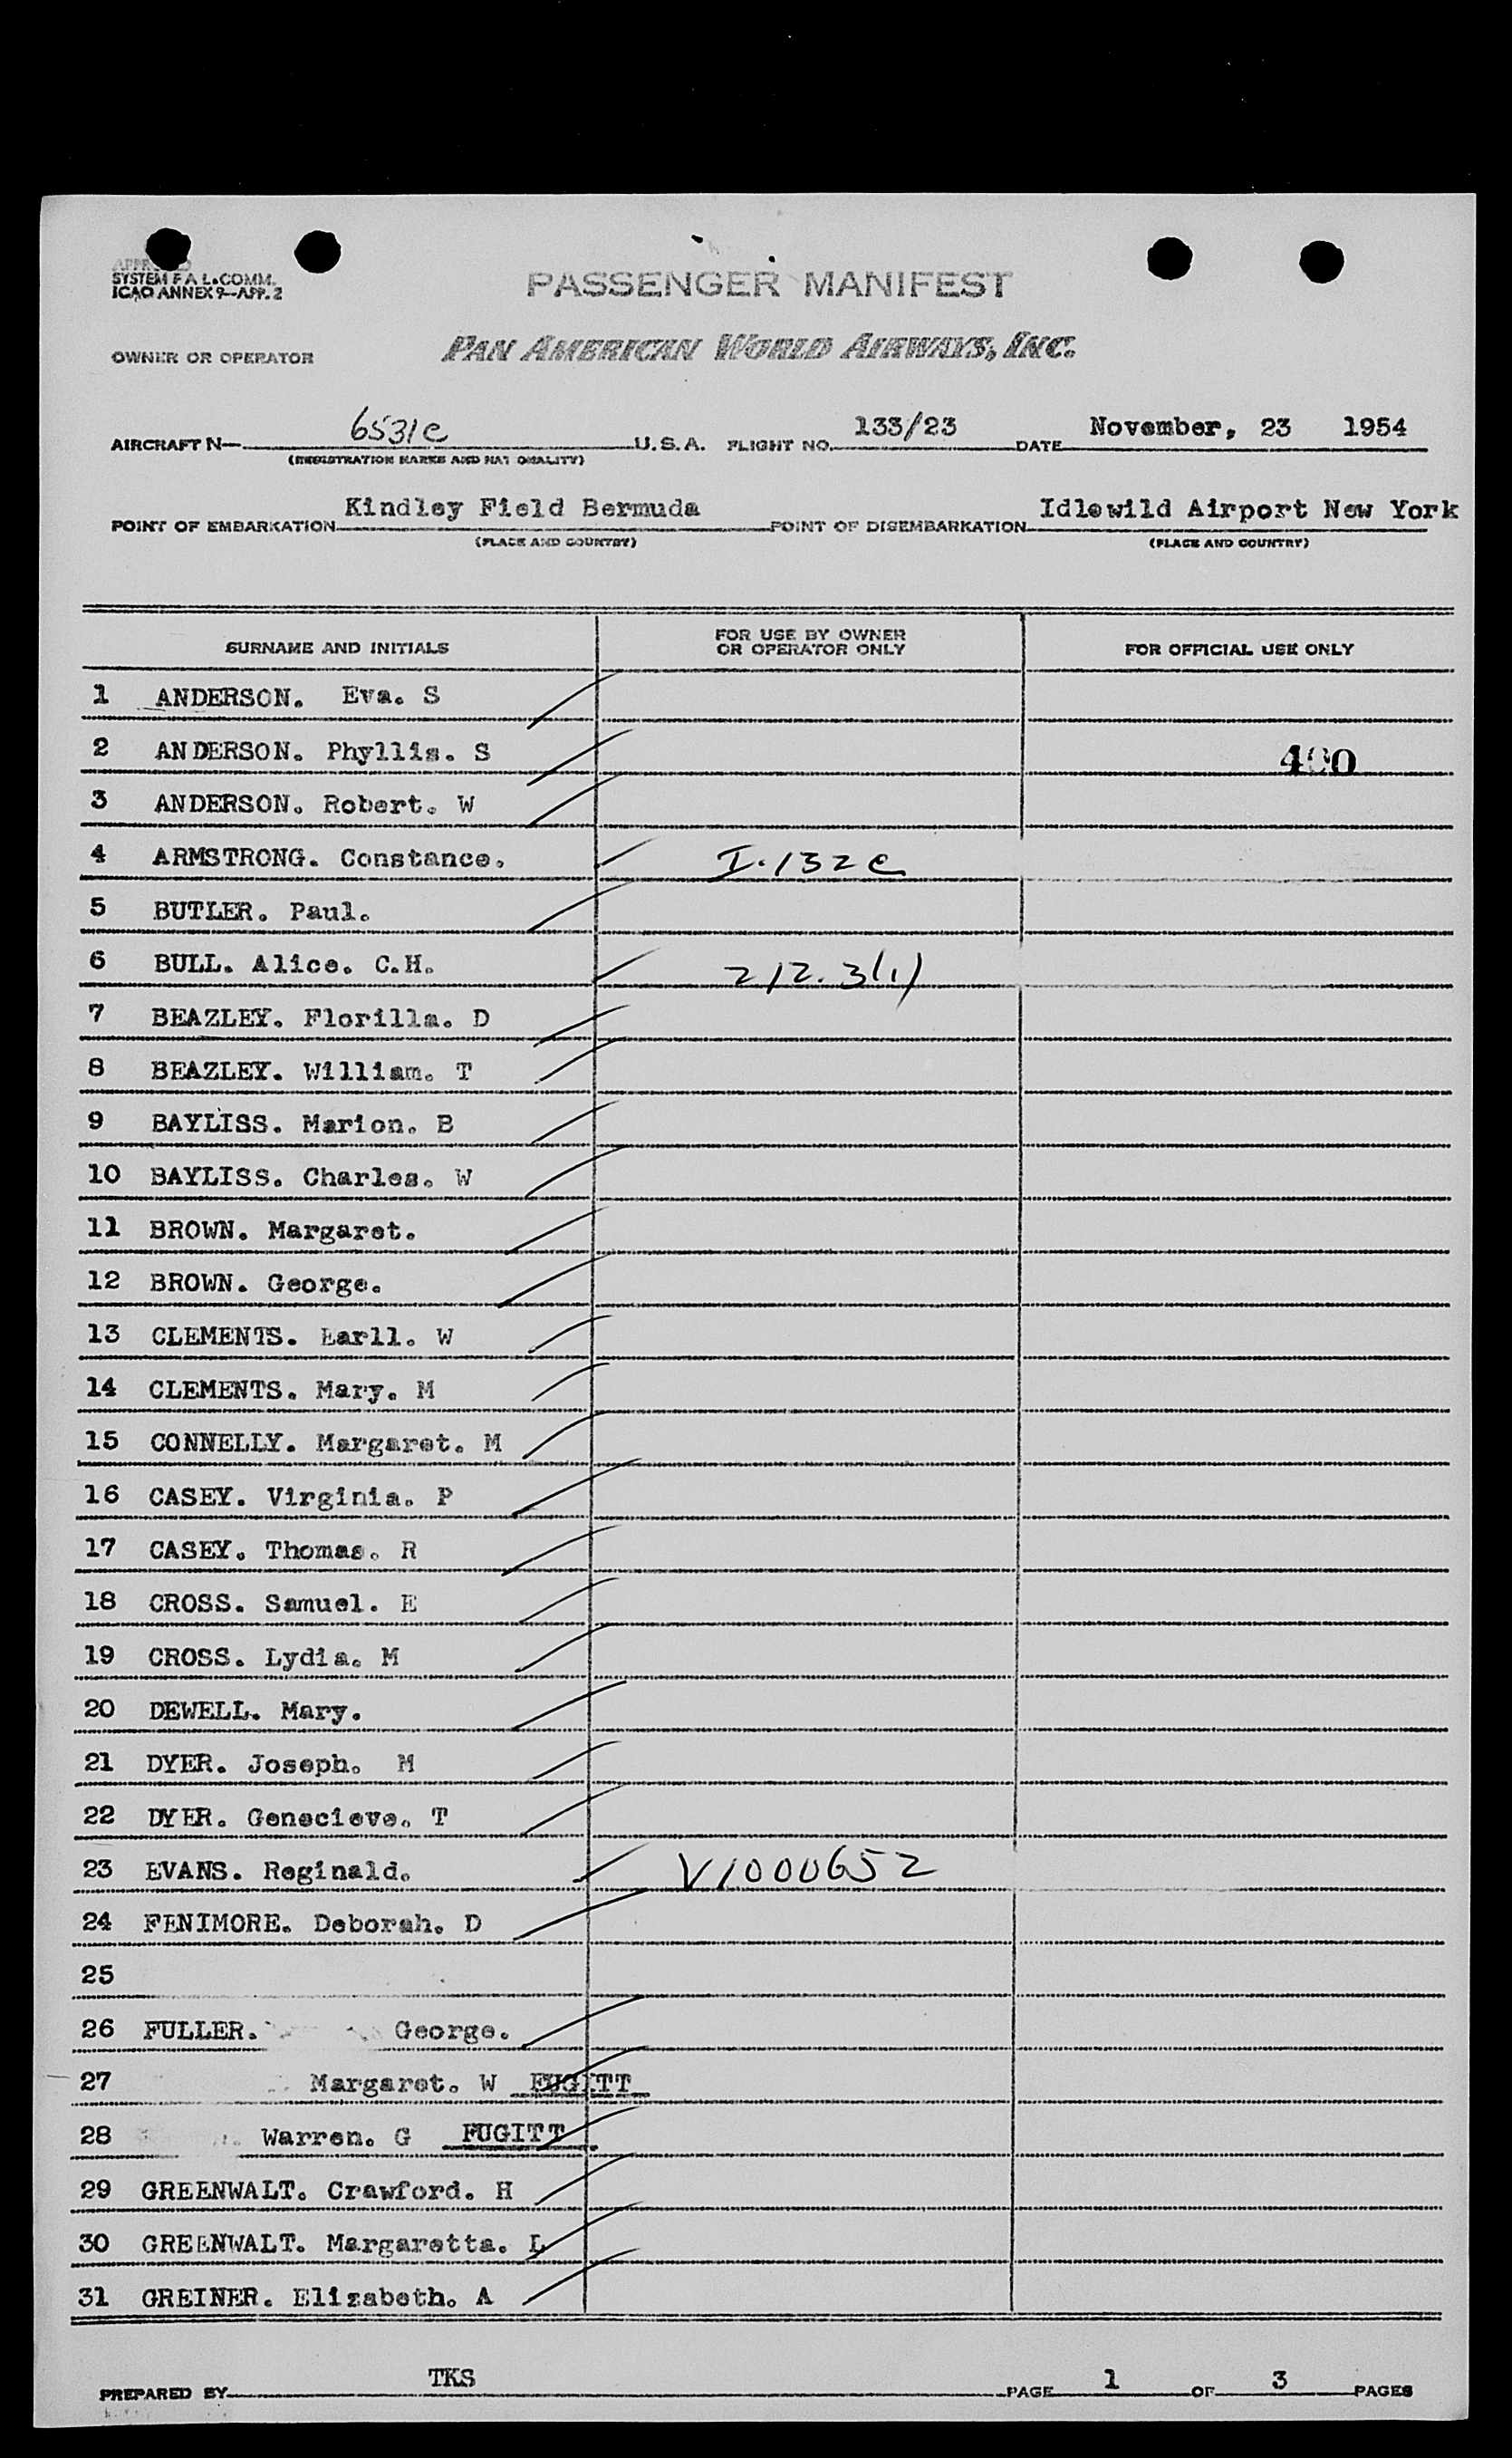 SYSTEM F A L. COMM.
ICAO ANNEX 9—APP. 2
PASSENGER MANIFEST
OWNER OR OPERATOR PAN AMERICAN WORLD AIRWAYS, INC.
AIRCRAFT N— 6531C U.S.A. FLIGHT NO. 133/23 DATE November, 23 1954
(REGISTRATION MARKS AND NATIONALITY)
POINT OF EMBARKATION Kindley Field Bermuda POINT OF DISEMBARKATION Idlewild Airport New York
(PLACE AND COUNTRY) (PLACE AND COUNTRY)
SURNAME AND INITIALS FOR USE BY OWNER OR OPERATOR ONLY FOR OFFICIAL USE ONLY
1 ANDERSON. Eva. S
2 ANDERSON. Phyllis. S 400
3 ANDERSON. Robert. W
4 ARMSTRONG. Constance. I-132 C
5 BUTLER. Paul.
6 BULL. Alice. C.H. 212.3(1)
7 BEAZLEY. Florilla. D
8 BEAZLEY. William. T
9 BAYLISS. Marion. B
10 BAYLISS. Charles. W
11 BROWN. Margaret.
12 BROWN. George.
13 CLEMENTS. Earll. W
14 CLEMENTS. Mary. M
15 CONNELLY. Margaret. M
16 CASEY. Virginia. P
17 CASEY. Thomas. R
18 CROSS. Samuel. E
19 CROSS. Lydia. M
20 DEWELL. Mary.
21 DYER. Joseph. M
22 DYER. Genecieve. T
23 EVANS. Reginald. V1000652
24 FENIMORE. Deborah. D
25
26 FULLER. George.
27 Margaret. W FUGITT
28 Warren. G FUGITT
29 GREENWALT. Crawford. H
30 GREENWALT. Margaretta. L
31 GREINER. Elizabeth. A
PREPARED BY TKS PAGE 1 OF 3 PAGES